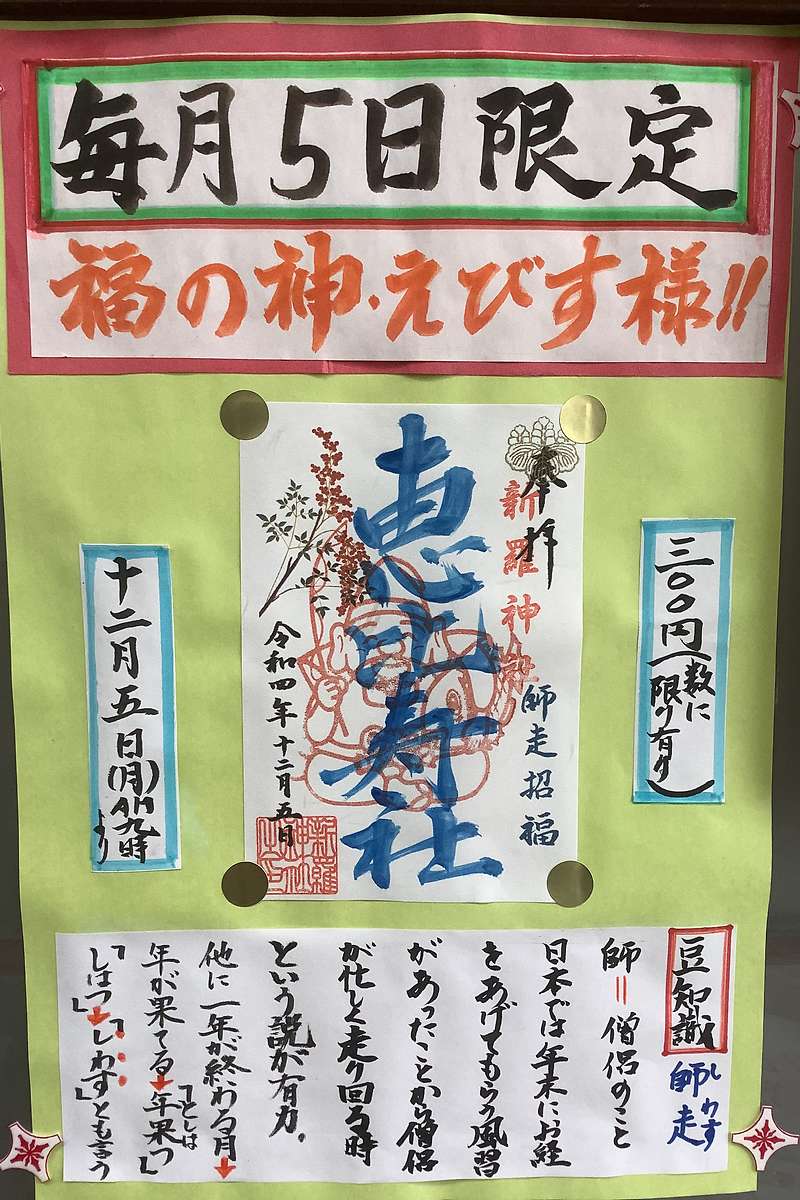 毎月5日限定
福の神・えびす様!!
三〇〇円(数に
限り有り)
奉拝
新羅神社
師走招福
恵比寿社
令和四年十二月五日
十二月五日(月)AM九時
より
豆知識
師走
しわす
師=僧侶のこと
日本では年末にお経
をあげてもらう風習
があったことから僧侶
が忙しく走り回る時
という説が有力。
他に一年が終わる月→
年が果てる→「年果つ」
としは
「しはつ」→「しわす」とも言う